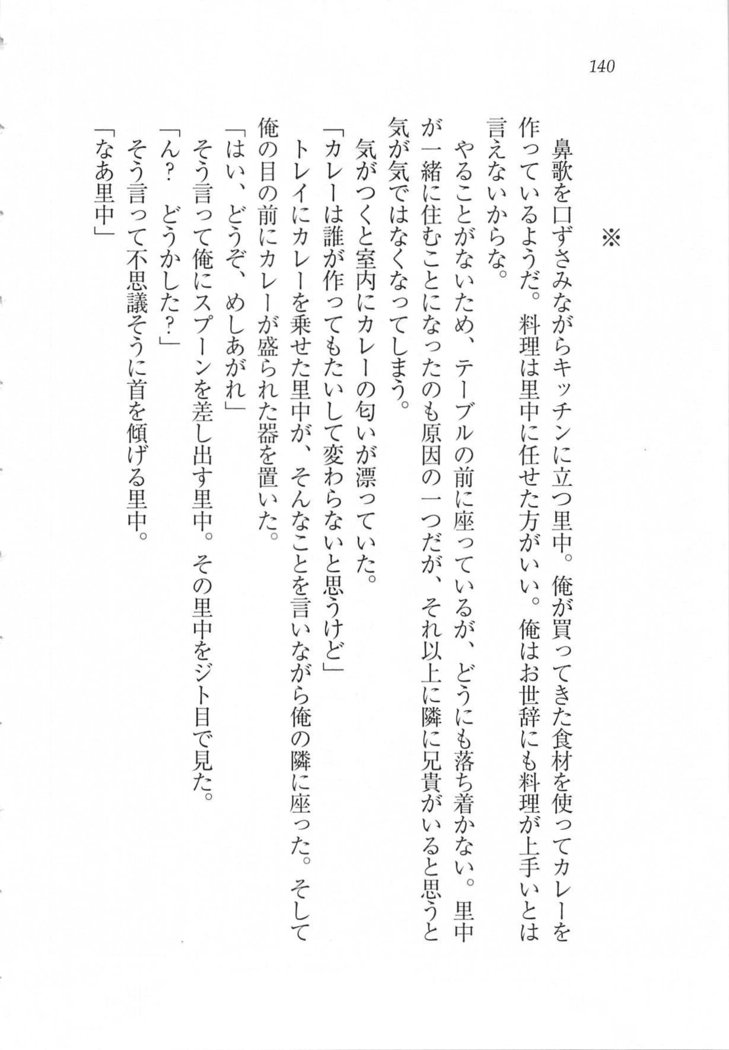 140
※
　鼻歌を口ずさみながらキッチンに立つ里中。俺が買ってきた食材を使ってカレーを
作っているようだ。料理は里中に任せた方がいい。俺はお世辞にも料理が上手いとは
言えないからな。
　やることがないため、テーブルの前に座っているが、どうにも落ち着かない。里中
が一緒に住むことになったのも原因の一つだが、それ以上に隣に兄貴がいると思うと
気が気ではなくなってしまう。
　気がつくと室内にカレーの匂いが漂っていた。
「カレーは誰が作ってもたいして変わらないと思うけど」
　トレイにカレーを乗せた里中が、そんなことを言いながら俺の隣に座った。そして
俺の目の前にカレーが盛られた器を置いた。
「はい、どうぞ、めしあがれ」
　そう言って俺にスプーンを差し出す里中。その里中をジト目で見た。
「ん？　どうかした？」
　そう言って不思議そうに首を傾げる里中。
「なあ里中」